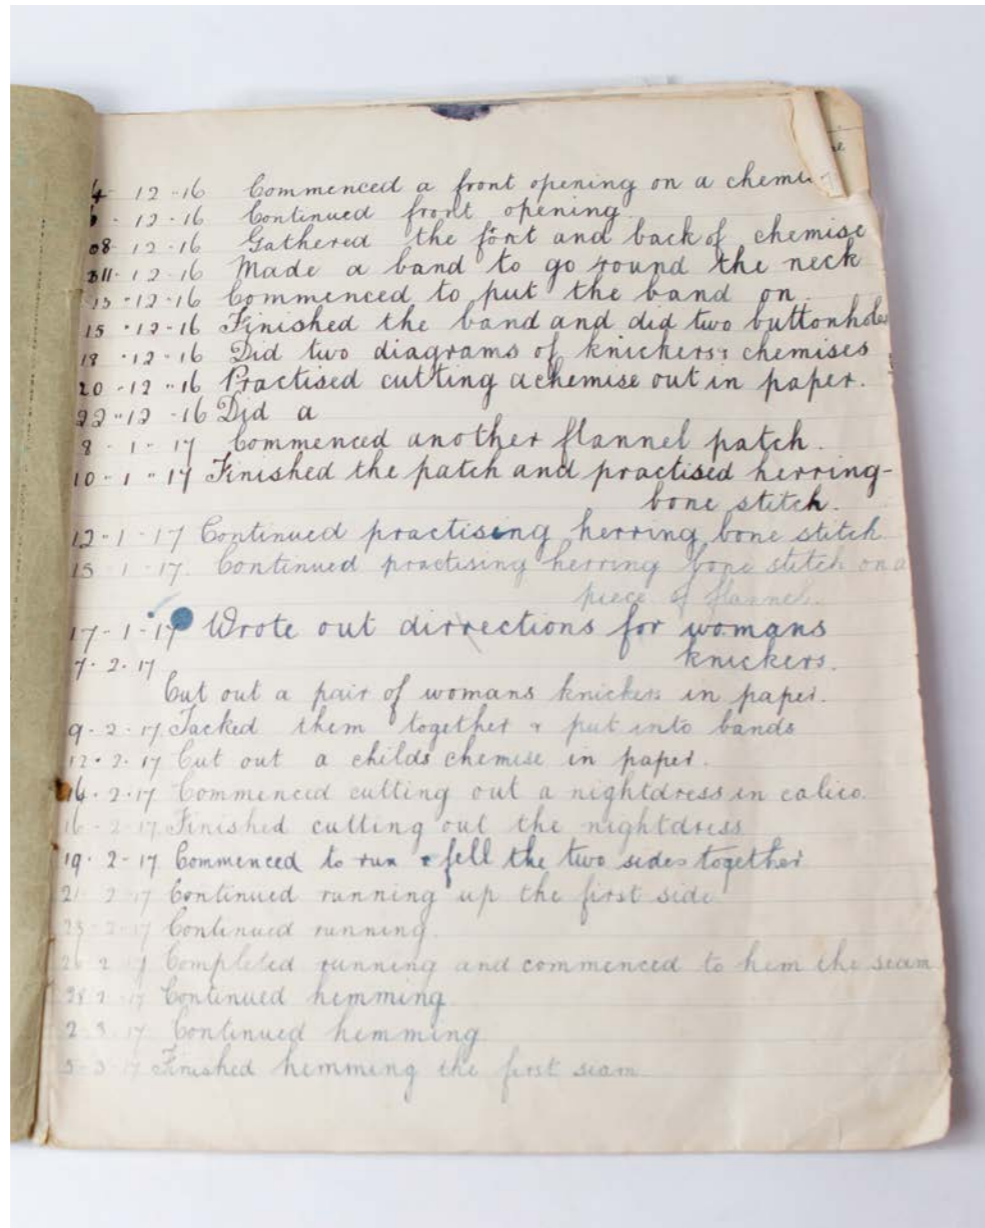 4-12-16 Commenced a front opening on a chemi
6-12-16 Continued front opening.
08-12-16 Gathered the font and back of chemise
11-12-16 Made a band to go round the neck
13-12-16 Commenced to put the band on.
15-12-16 Finished the band and did two buttonholes
18-12-16 Did two diagrams of knickers & chemises
20-12-16 Practised cutting a chemise out in paper.
22-12-16 Did a
8-1-17 Commenced another flannel patch.
10-1-17 Finished the patch and practised herring-
bone stitch.
12-1-17 Continued practising herring bone stitch
15-1-17. Continued practising herring bone stitch on a
piece of flannel.
17-1-17 Wrote out dirrections for womans
knickers.
7.2.17
Cut out a pair of womans knickers in paper.
9.2.17 Tacked them together & put into bands
12.2.17 Cut out a childs chemise in paper.
14.2.17 Commenced cutting out a nightdress in calico.
16-2-17 Finished cutting out the nightdress
19.2-17 Commenced to run & fell the two sides together
21 2 17 Continued running up the first side
23-2-17 Continued running.
26 2 17 Completed running and commenced to hem the seam
28 2 17 Continued hemming
2.3.17 Continued hemming
5-3-17 Finished hemming the first seam